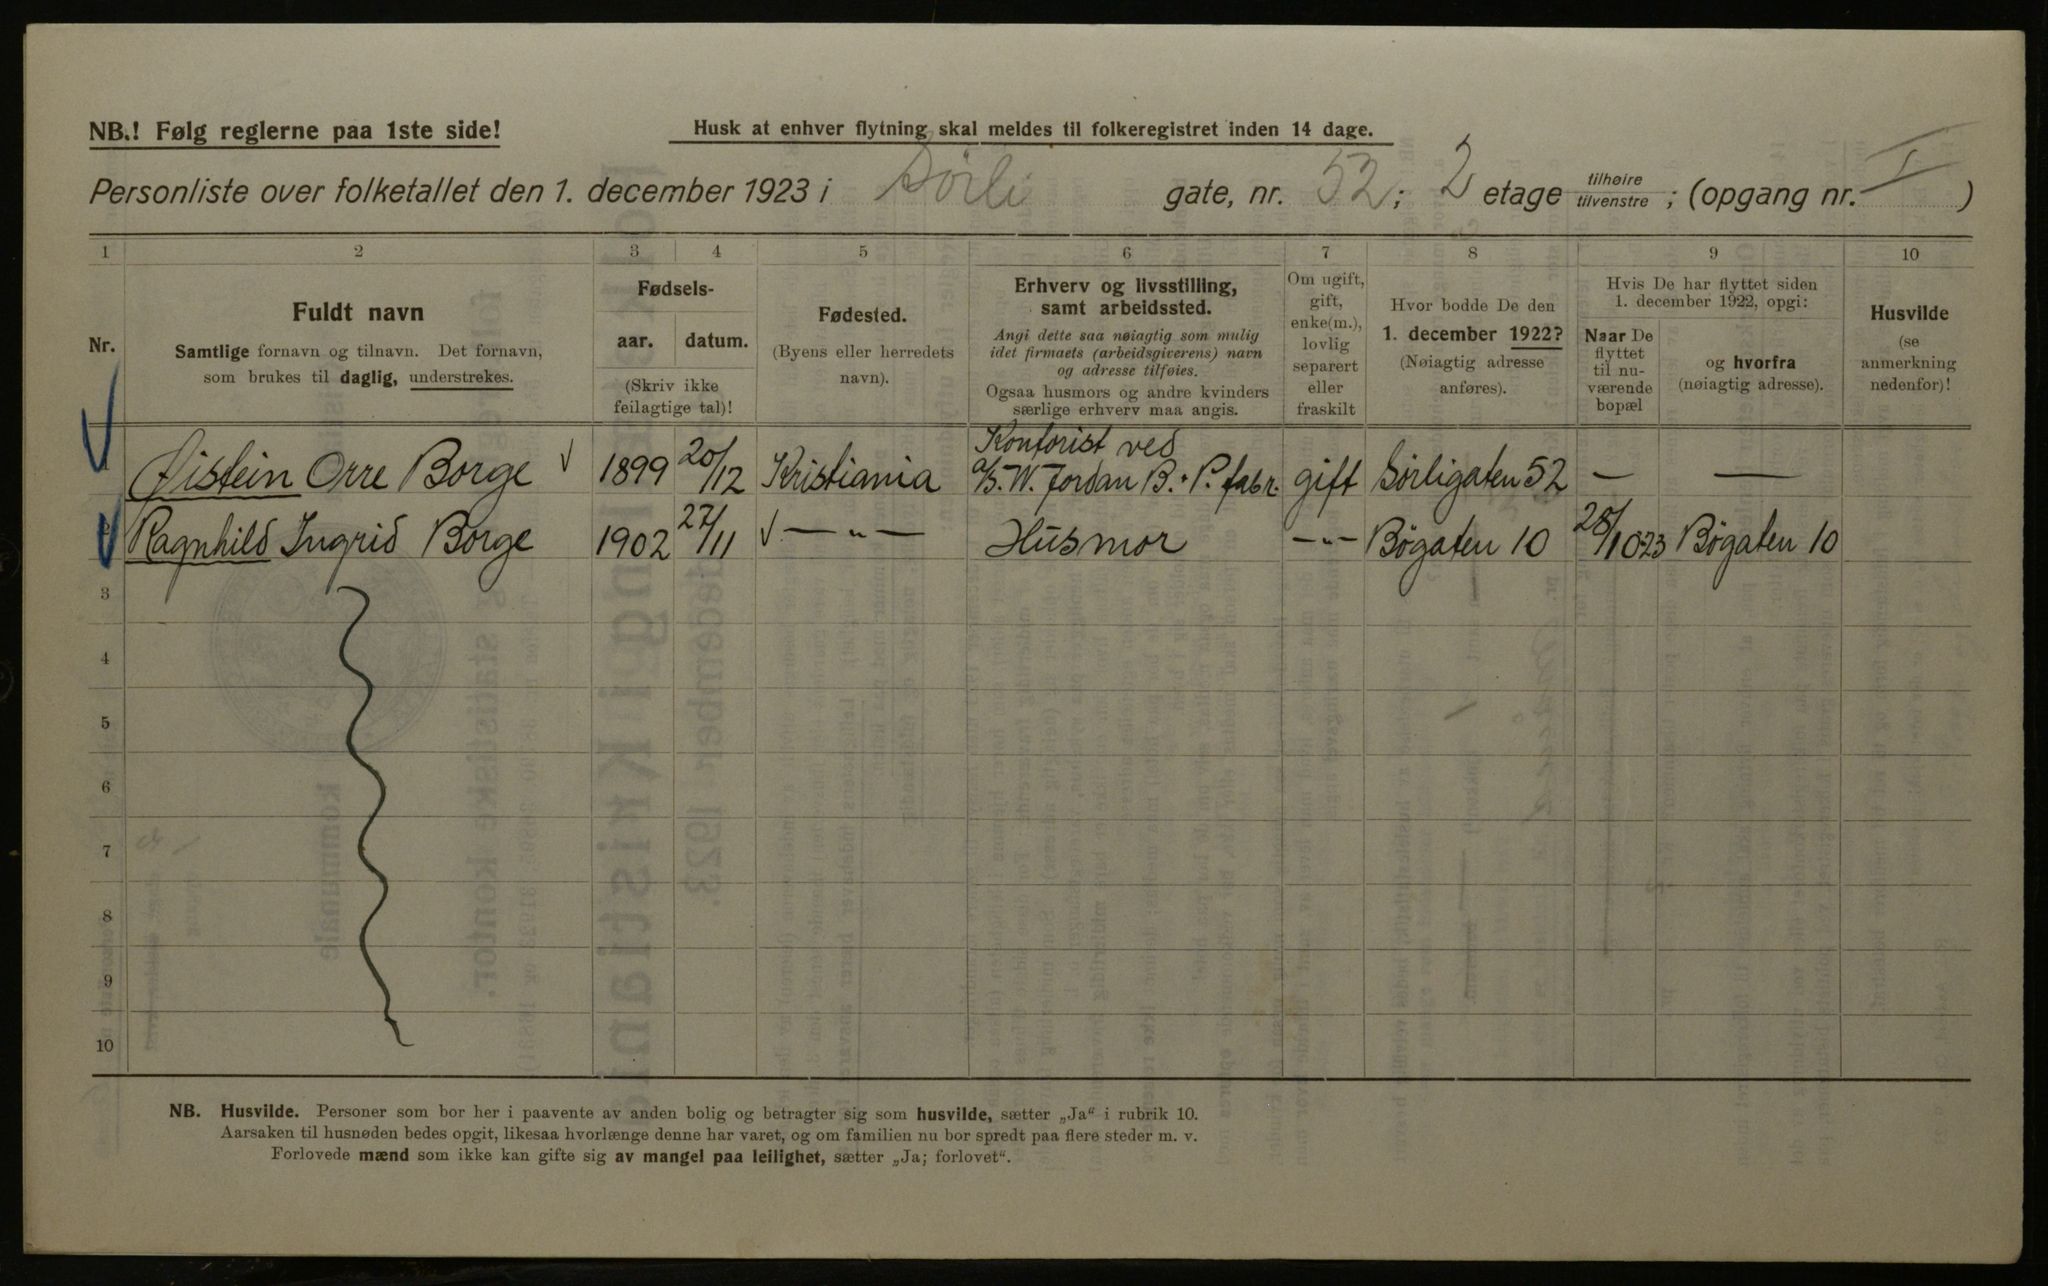 NB.! Følg reglerne paa 1ste side!
Husk at enhver flytning skal meldes til folkeregistret inden 14 dage.
Personliste over folketallet den 1. december 1923 i Sörli gate, nr. 52; 2 etage tilhøire tilvenstre; (opgang nr. I)
1 2 3 4 5 6 7 8 9 10
Nr.
Fuldt navn
Samtlige fornavn og tilnavn. Det fornavn,
som brukes til daglig, understrekes.
Fødsels-
aar. datum.
(Skriv ikke
feilagtige tal)!
Fødested.
(Byens eller herredets
navn).
Erhverv og livsstilling,
samt arbeidssted.
Angi dette saa nøiagtig som mulig
idet firmaets (arbeidsgiverens) navn
og adresse tilføies.
Ogsaa husmors og andre kvinders
særlige erhverv maa angis.
Om ugift,
gift,
enke(m.),
lovlig
separert
eller
fraskilt
Hvor bodde De den
1. december 1922?
(Nøiagtig adresse
anføres).
Hvis De har flyttet siden
1. december 1922, opgi:
Naar De
flyttet
til nu-
værende
bopæl
og hvorfra
(nøiagtig adresse).
Husvilde
(se
anmerkning
nedenfor)!
1 Øistein Orre Borge 1899 20/12 Kristiania Kontorist ved
A/S. W. Jordan B. & P. fabr. gift Sörligaten 52 — —
2 Ragnhild Ingrid Borge 1902 27/11 — „ — Husmor — „ — Bøgaten 10 28/10 23 Bøgaten 10
3
4
5
6
7
8
9
10
NB. Husvilde. Personer som bor her i paavente av anden bolig og betragter sig som husvilde, sætter „Ja“ i rubrik 10.
Aarsaken til husnøden bedes opgit, likesaa hvorlænge denne har varet, og om familien nu bor spredt paa flere steder m. v.
Forlovede mænd som ikke kan gifte sig av mangel paa leilighet, sætter „Ja; forlovet“.